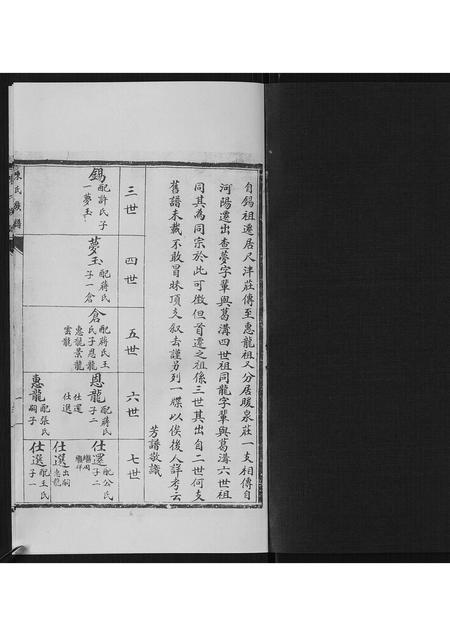 自錫祖遷居尺津莊傳至惠龍祖又分居暖泉莊一支相傳自
河陽遷出查夢字輩與葛溝四世祖同龍字輩與葛溝六世祖
同其為同宗於此可徵但首遷之祖係三世其出自二世何支
舊譜未載不敢冒昧頂支叙去謹另列一牒以俟後人詳考云
芳譜敬識
三世
錫
配許氏子
一夢玉
四世
夢玉
配蔣氏
子一倉
五世
倉
配蔣氏王
氏子恩龍
惠龍景龍
雲龍
六世
恩龍
配蔣氏
子二
仕選
仕選
惠龍
配張氏
嗣子
七世
仕選
配公氏
子二
仕選
出嗣
惠龍
仕選
配王氏
子一
陳氏族譜